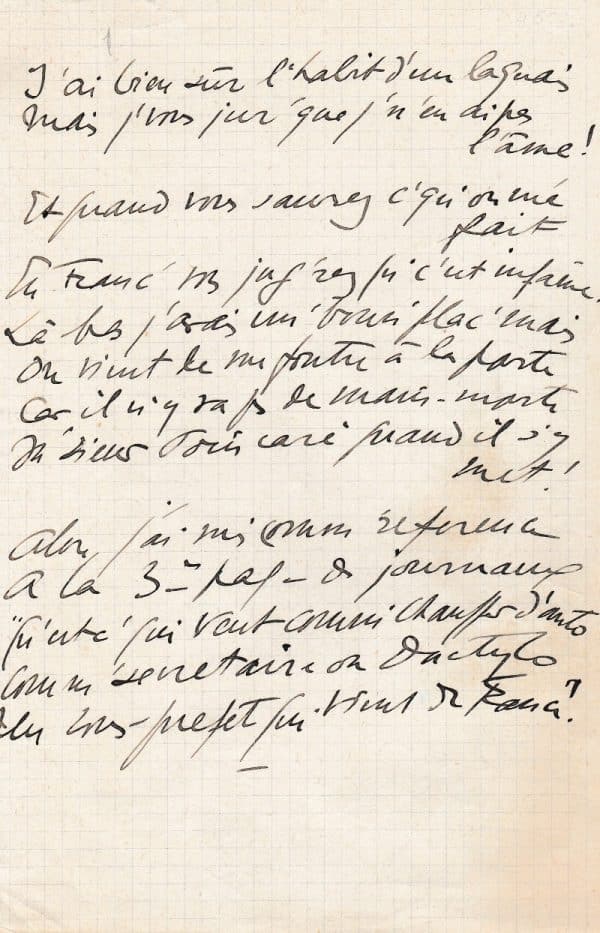 J'ai bien sûr l'habit d'un laquais
Mais j'vous jur' que j'n'en ai pas
l'âme!
Et quand vous saurez c'qu'on m'a
fait
En Franc' vous jug'rez qu'c'est infâme.
Là bas j'avais un' bonn' plac' mais
On vient de me foutre à la porte
Car il n'y va pas de main-morte
M'sieur Poincaré quand il s'y
met!
Alors j'ai mis comm' référence
A la 3me pag' des journaux
"Qu'est c' qui veut comm' chauffeur d'auto
Comm' secrétaire ou dactylo
Un sous-préfet qui vient de France".